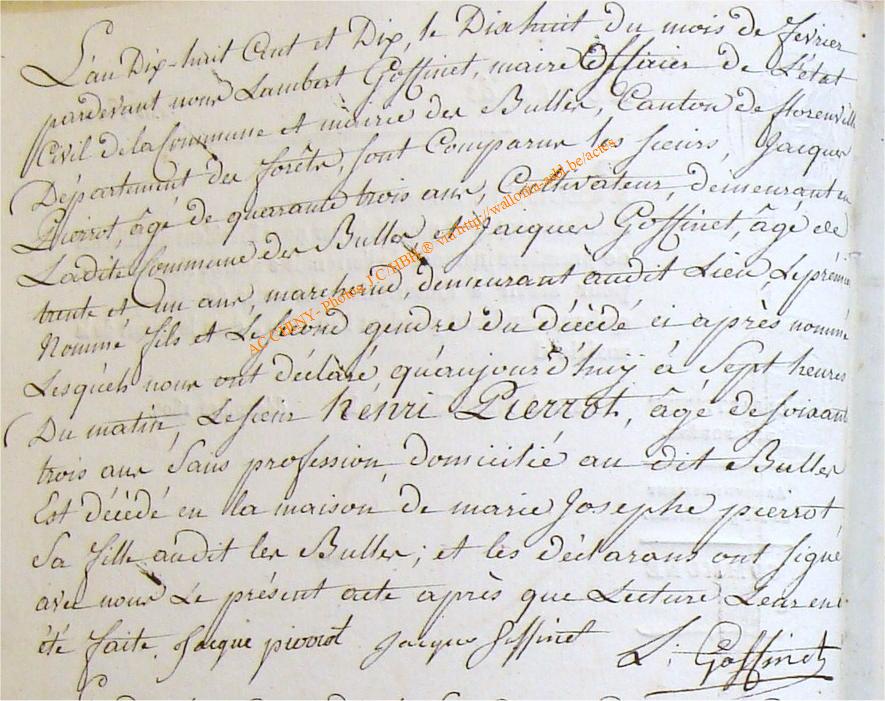 L'an Dix-huit Cent et Dix, le Dixhuit du mois de fevrier
pardevant nous Lambert Goffinet, maire Officier de L'état
Civil de la Commune et mairie des Bulles, Canton de florenville
Département des forêts, sont Comparus les sieurs, Jacques
Pierrot, âgé de quarante trois ans, Cultivateur, demeurant en
Ladite Commune des Bulles et Jacques Goffinet, âgé de
trente et un ans, marchand, demeurant audit Lieu, Le prémier
Nommé fils et Le second gendre du décédé ci après nommé
Lesquels nous ont déclaré, qu'aujourd'huy à Sept heures
Du matin, Le sieur henri Pierrot, âgé de soixante
trois ans Sans profession, domicilié au dit Bulles
Est décédé en la maison de marie Josephe pierrot,
Sa fille audit les Bulles; et les déclarans ont signé
avec nous Le présent acte après que Lecture Leur en a
été faite. Jacque pierrot Jacques Goffinet
L. Goffinet
AC CHINY - Photos J C/HBH ® via http://wallonia-asbl.be/actes